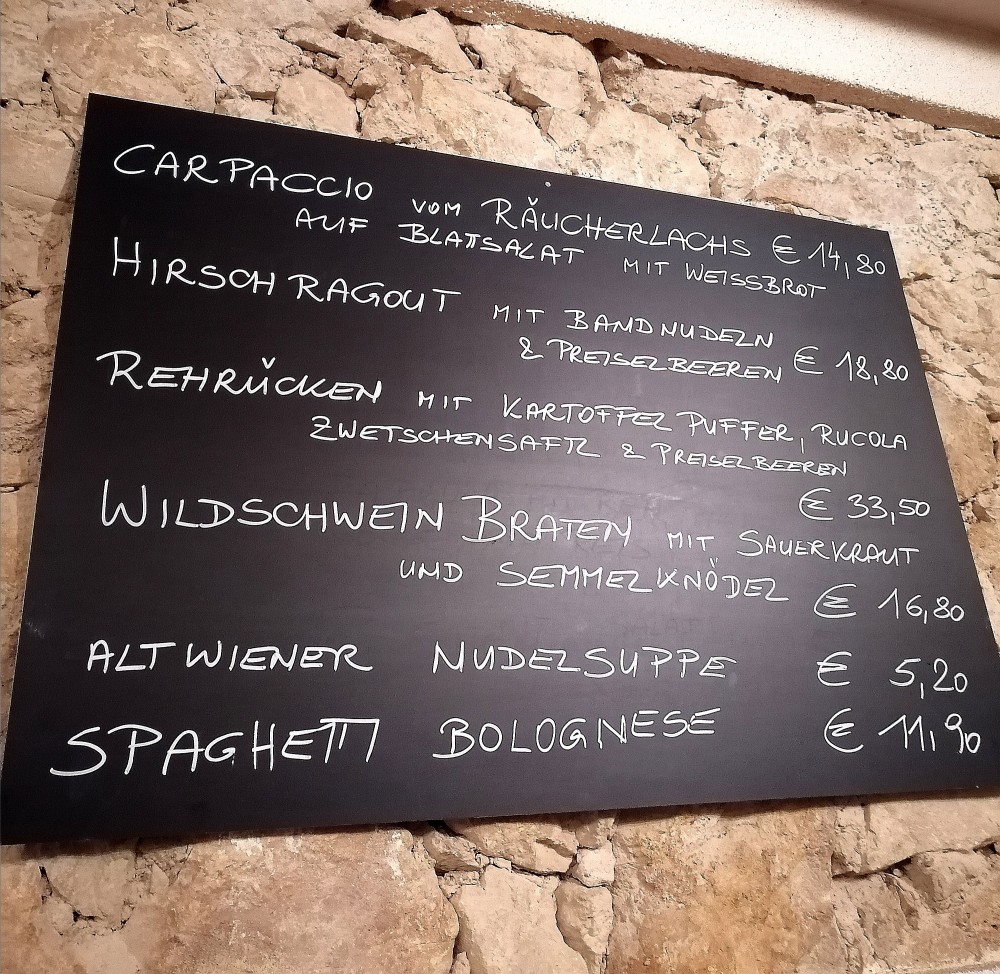 CARPACCIO VOM RÄUCHERLACHS € 14,80
AUF BLATTSALAT MIT WEISSBROT
HIRSCH RAGOUT MIT BANDNUDELN
& PREISELBEEREN € 18,80
REHRÜCKEN MIT KARTOFFEL PUFFER, RUCOLA
ZWETSCHENSAFTL & PREISELBEEREN
€ 33,50
WILDSCHWEIN BRATEN MIT SAUERKRAUT
UND SEMMELKNÖDEL € 16,80
ALT WIENER NUDELSUPPE € 5,20
SPAGHETTI BOLOGNESE € 11,90